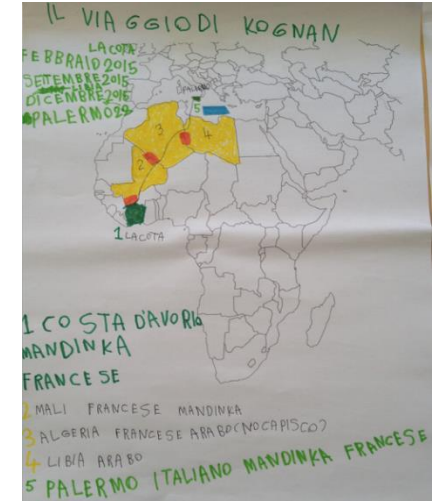 IL VIAGGIO DI KOGNAN
LACOTA
FEBBRAIO 2015
SETTEMBRE 2015
LIBIA
DICEMBRE 2015
PALERMO 29
3
5
4
2
1 LACOTA
1 COSTA D'AVORIO
MANDINKA
FRANCESE
2 MALI FRANCESE MANDINKA
3 ALGERIA FRANCESE ARABO (NO CAPISCO)
4 LIBIA ARABO
5 PALERMO ITALIANO MANDINKA FRANCESE